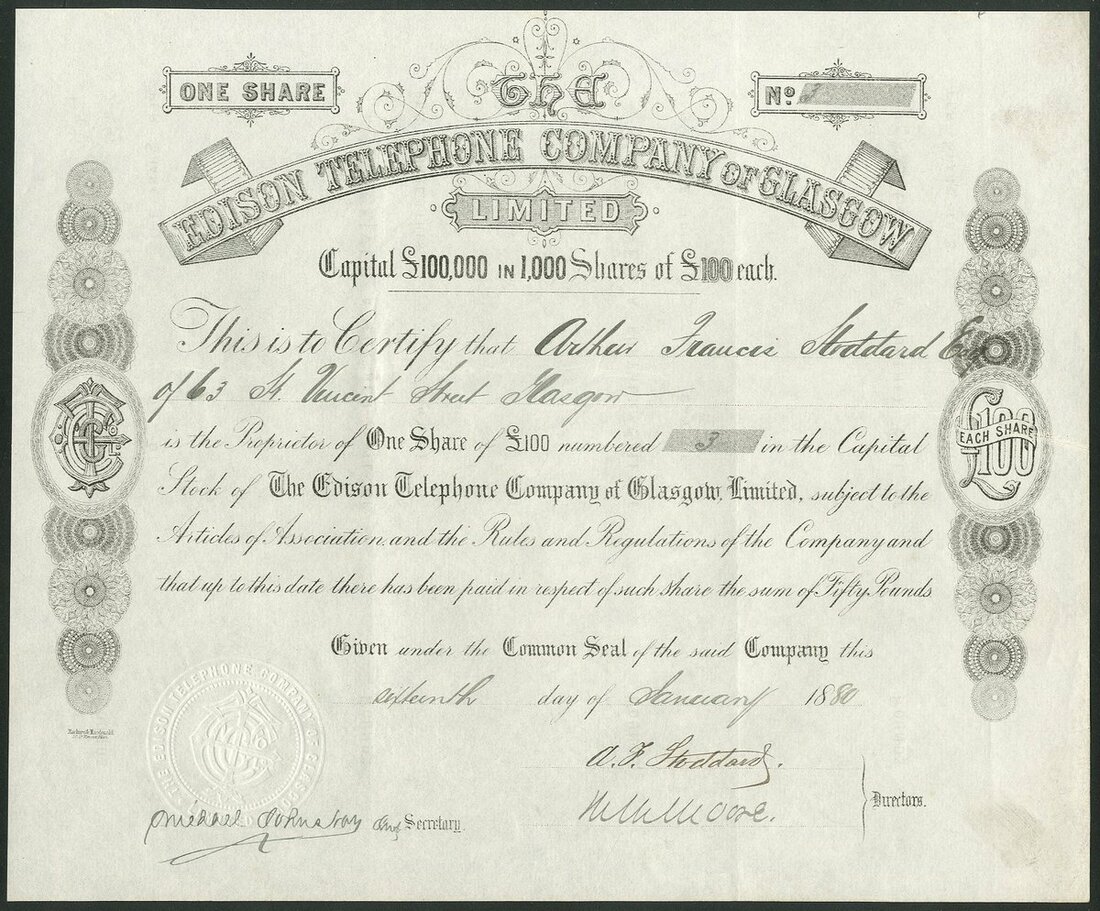 ONE SHARE
No. 3
The
EDISON TELEPHONE COMPANY OF GLASGOW
LIMITED
Capital £100,000 IN 1,000 Shares of £100 each.
This is to Certify that Arthur Francis Stoddard Esq
of 63 St. Vincent Street Glasgow
is the Proprietor of One Share of £100 numbered 3 in the Capital
Stock of The Edison Telephone Company of Glasgow, Limited, subject to the
Articles of Association and the Rules and Regulations of the Company and
that up to this date there has been paid in respect of such share the sum of Fifty Pounds
£100
EACH SHARE
Given under the Common Seal of the said Company this
sixteenth day of January 1880
THE EDISON TELEPHONE COMPANY OF GLASGOW
A. F. Stoddard.
Moore.
Directors.
Michael Johnston Secretary.